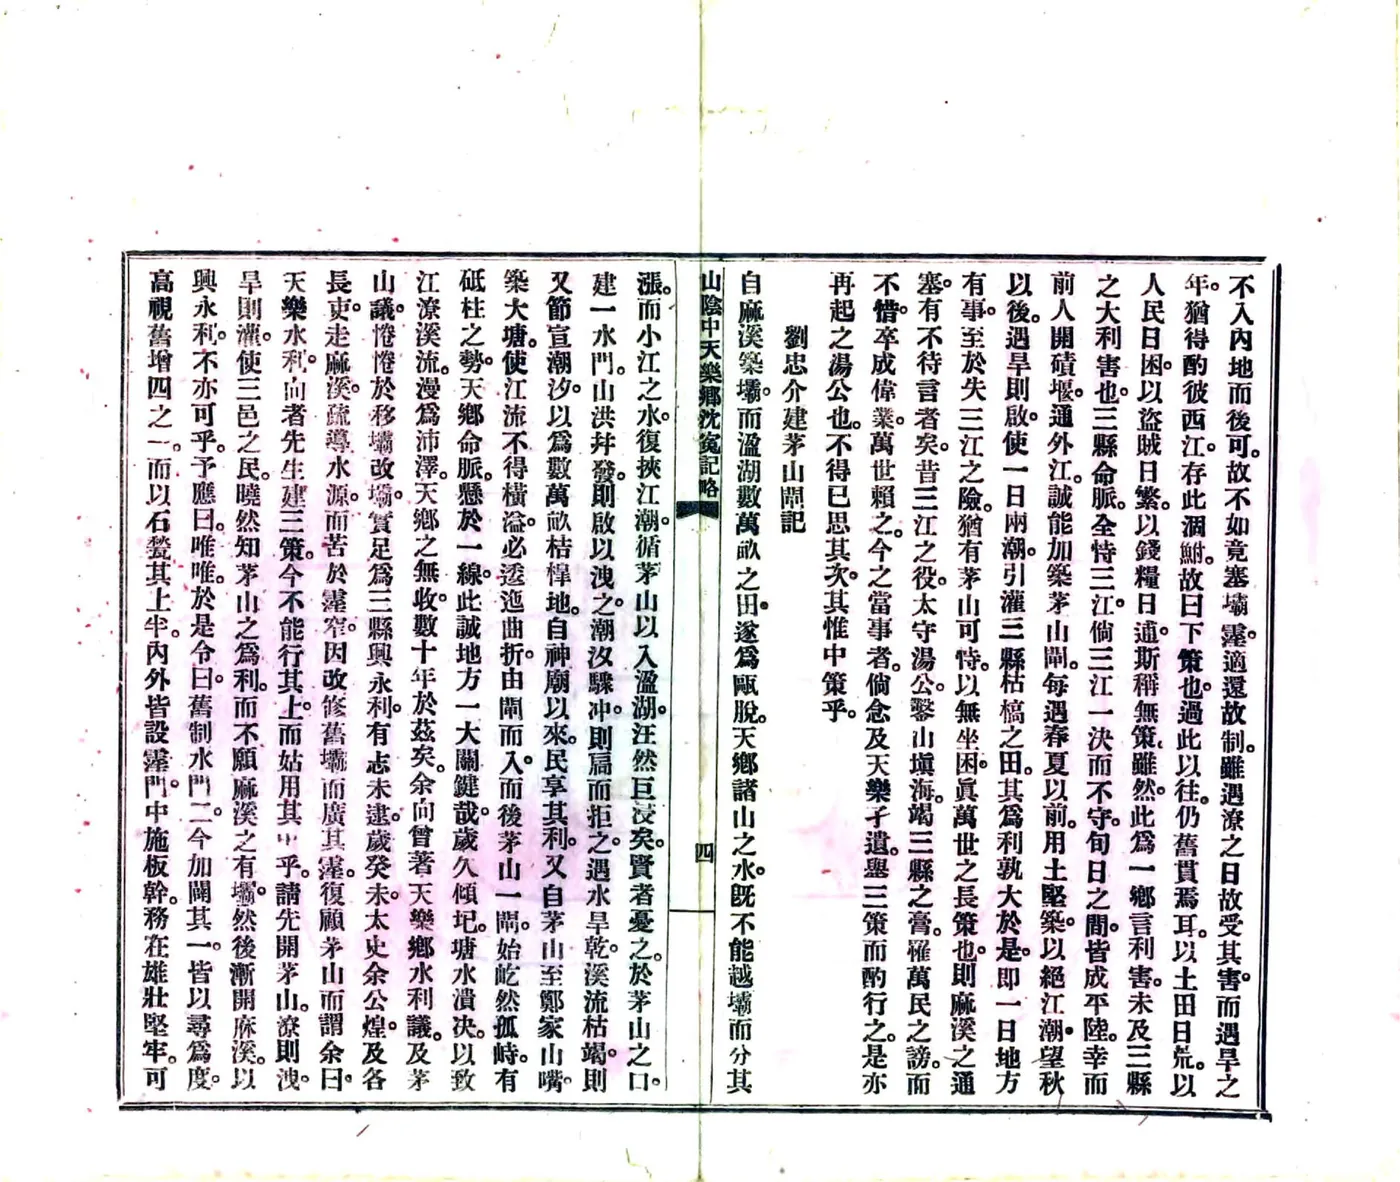 不入內地而後可。故不如竟塞壩霪。適還故制。雖遇潦之日故受其害。而遇旱之
年。猶得酌彼西江。存此涸鮒。故曰下策也。過此以往。仍舊貫焉耳。以土田日荒。以
人民日困。以盜賊日繁。以錢糧日逋。斯稱無策。雖然。此爲一鄉言利害。未及三縣
之大利害也。三縣命脈。全恃三江。倘三江一決而不守。旬日之間。皆成平陸。幸而
前人開磧堰。通外江。誠能加築茅山閘。每遇春夏以前。用土堅築。以絕江潮。望秋
以後。遇旱則啟。使一日兩潮。引灌三縣枯槁之田。其爲利孰大於是。即一日地方
有事。至於失三江之險。猶有茅山可恃。以無坐困。眞萬世之長策也。則麻溪之通
塞。有不待言者矣。昔三江之役。太守湯公。鑿山塡海。竭三縣之膏。罹萬民之謗。而
不惜。卒成偉業。萬世賴之。今之當事者。倘念及天樂孑遺。舉三策而酌行之。是亦
再起之湯公也。不得已思其次。其惟中策乎。
劉忠介建茅山閘記
自麻溪築壩。而溋湖數萬畝之田。遂爲甌脫。天鄉諸山之水。旣不能越壩而分其
山陰中天樂鄉沈寃記略
四
漲。而小江之水。復挾江潮。循茅山以入溋湖。汪然巨浸矣。賢者憂之。於茅山之口。
建一水門。山洪幷發。則啟以洩之。潮汐驟冲。則扃而拒之。遇水旱乾。溪流枯竭。則
又節宣潮汐。以爲數萬畝桔槔地。自神廟以來。民享其利。又自茅山至鄭家山嘴。
築大塘。使江流不得橫溢。必透迤曲折。由閘而入。而後茅山一閘。始屹然孤峙。有
砥柱之勢。天鄉命脈。懸於一線。此誠地方一大關鍵哉。歲久傾圮。塘水潰決。以致
江潦溪流。漫爲沛澤。天鄉之無收。數十年於茲矣。余向曾著天樂鄉水利議。及茅
山議。惓惓於移壩改壩。實足爲三縣興永利。有志未逮。歲癸未。太史余公煌。及各
長吏。走麻溪。疏導水源。而苦於霪窄。因改修舊壩而廣其霪。復顧茅山而謂余曰。
天樂水利。向者先生建三策。今不能行其上。而姑用其中乎。請先開茅山。潦則洩。
旱則灌。使三邑之民。曉然知茅山之爲利。而不願麻溪之有壩。然後漸開麻溪。以
興永利。不亦可乎。予應曰。唯唯。於是令曰。舊制水門二。今加闢其一。皆以尋爲度。
高視舊增四之一。而以石甃其上半。內外皆設霪門。中施板幹。務在雄壯堅牢。可